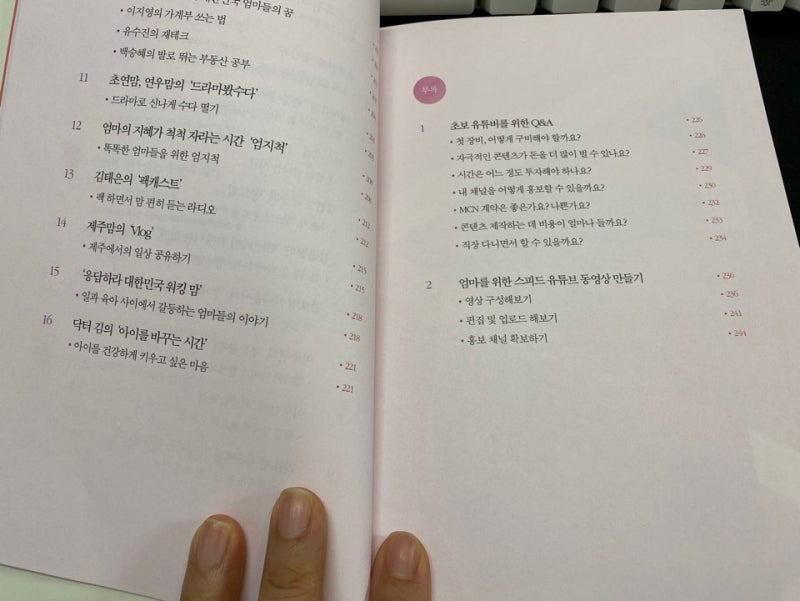 엄마들의 꿈
• 이지영의 가계부 쓰는 법
• 유수진의 재테크
• 백승혜의 발로 뛰는 부동산 공부
11 초연맘, 연우맘의 ‘드라마봤수다’
• 드라마로 신나게 수다 떨기
12 엄마의 지혜가 척척 자라는 시간 ‘엄지척’
• 똑똑한 엄마들을 위한 엄지척
13 김태은의 ‘팩캐스트’
• 팩 하면서 맘 편히 듣는 라디오
14 제주맘의 ‘Vlog’ • 212
• 제주에서의 일상 공유하기 • 212
15 ‘응답하라 대한민국 워킹 맘’ • 215
• 일과 육아 사이에서 갈등하는 엄마들의 이야기 • 215
16 닥터 김의 ‘아이를 바꾸는 시간’ • 218
• 아이를 건강하게 키우고 싶은 마음 • 218
• 221
• 221
부록
1 초보 유튜버를 위한 Q&A • 226
• 첫 장비, 어떻게 구비해야 할까요? • 226
• 자극적인 콘텐츠가 돈을 더 많이 벌 수 있나요? • 227
• 시간은 어느 정도 투자해야 하나요? • 229
• 내 채널을 어떻게 홍보할 수 있을까요? • 230
• MCN 계약은 좋은가요? 나쁜가요? • 232
• 콘텐츠 제작하는 데 비용이 얼마나 들까요? • 233
• 직장 다니면서 할 수 있을까요? • 234
2 엄마를 위한 스피드 유튜브 동영상 만들기 • 236
• 영상 구성해보기 • 236
• 편집 및 업로드 해보기 • 241
• 홍보 채널 확보하기 • 244